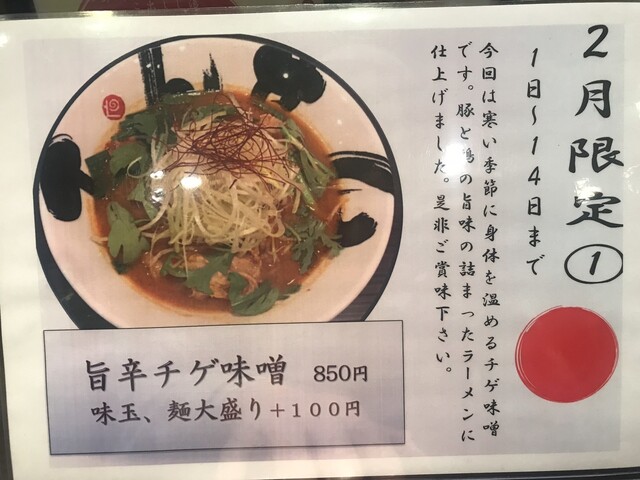 2月限定①
1日～14日まで
今回は寒い季節に身体を温めるチゲ味噌
です。豚と鶏の旨味の詰まったラーメンに
仕上げました。是非ご賞味下さい。
旨辛チゲ味噌 850円
味玉、麺大盛り＋100円